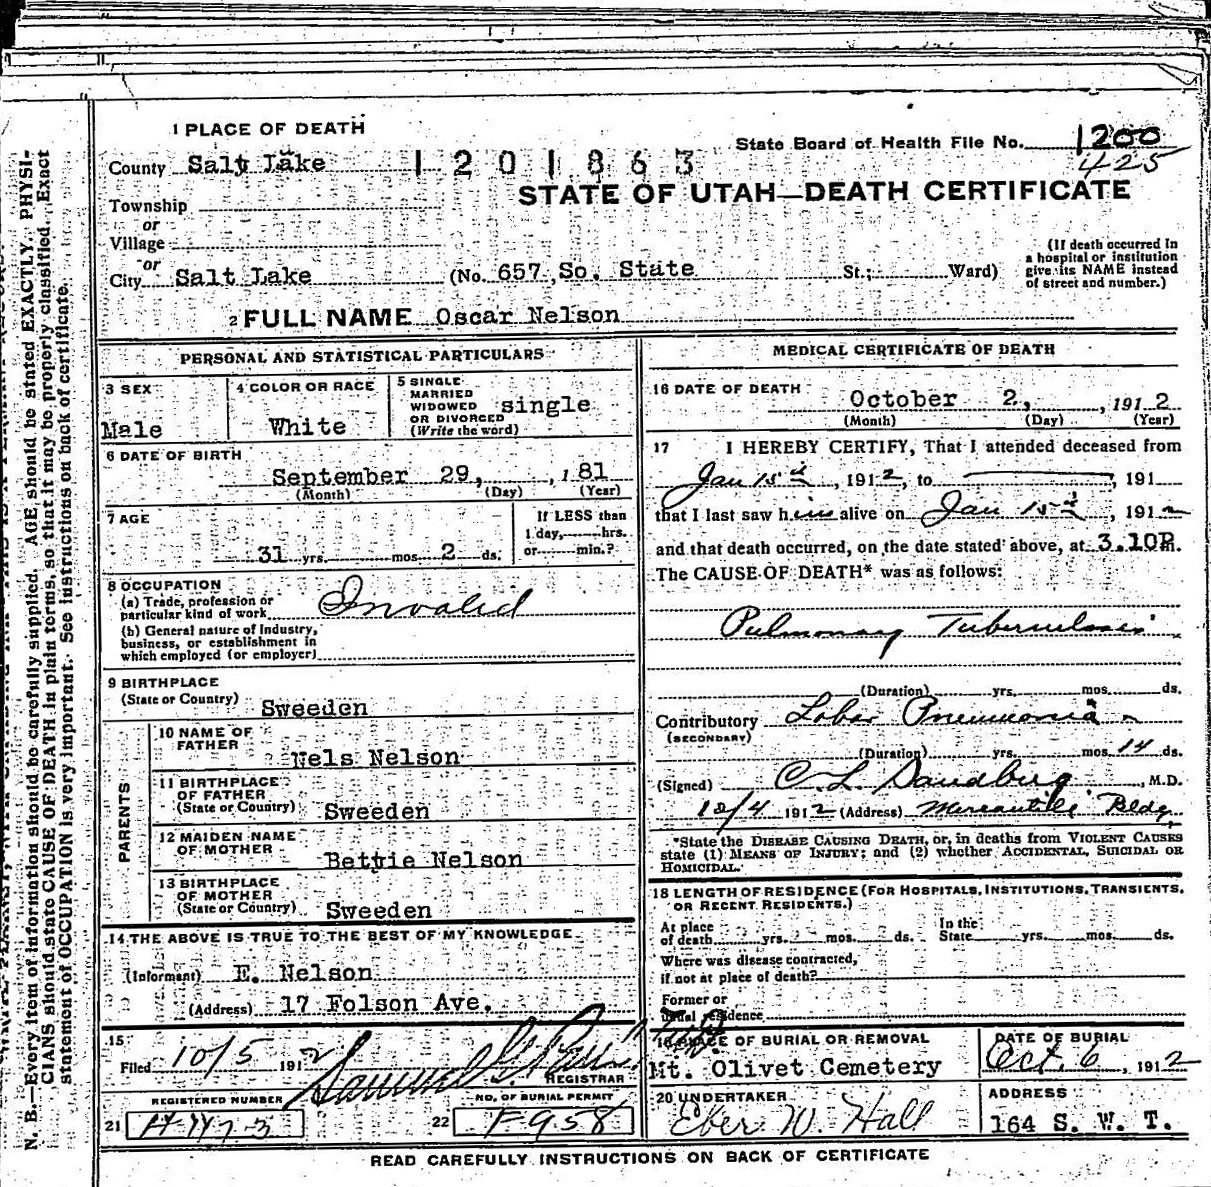 1 PLACE OF DEATH
State Board of Health File No. 1200
425
County Salt Lake 1201863
STATE OF UTAH—DEATH CERTIFICATE
Township
or
Village
or
City Salt Lake (No. 657 So. State St.; Ward)
(If death occurred in
a hospital or institution
give its NAME instead
of street and number.)
2 FULL NAME Oscar Nelson
PERSONAL AND STATISTICAL PARTICULARS
3 SEX
Male
4 COLOR OR RACE
White
5 SINGLE
MARRIED
WIDOWED
OR DIVORCED
(Write the word)
single
6 DATE OF BIRTH
September 29, , 1 81
(Month) (Day) (Year)
7 AGE
31 yrs. mos. 2 ds.
If LESS than
1 day, hrs.
or min.?
8 OCCUPATION
(a) Trade, profession or
particular kind of work Invalid
(b) General nature of industry,
business, or establishment in
which employed (or employer)
9 BIRTHPLACE
(State or Country) Sweeden
PARENTS
10 NAME OF
FATHER
Nels Nelson
11 BIRTHPLACE
OF FATHER
(State or Country) Sweeden
12 MAIDEN NAME
OF MOTHER
Bettie Nelson
13 BIRTHPLACE
OF MOTHER
(State or Country) Sweeden
14 THE ABOVE IS TRUE TO THE BEST OF MY KNOWLEDGE
(Informant) E. Nelson
(Address) 17 Folson Ave.
15
Filed 10/5 1912 Samuel G. Paul
REGISTRAR
REGISTERED NUMBER
21
NO. OF BURIAL PERMIT
22 F958
MEDICAL CERTIFICATE OF DEATH
16 DATE OF DEATH
October 2, , 1912
(Month) (Day) (Year)
17 I HEREBY CERTIFY, That I attended deceased from
Jan 15th, 1912, to , 191
that I last saw him alive on Jan 15th, 1912
and that death occurred, on the date stated above, at 3.10P.m.
The CAUSE OF DEATH* was as follows:
Pulmonary Tuberculosis
(Duration) yrs. mos. ds.
Contributory Lobar Pneumonia
(SECONDARY)
(Duration) yrs. mos. 14 ds.
(Signed) C. L. Sandberg, M.D.
10/4 1912 (Address) Mercantile Bldg
*State the DISEASE CAUSING DEATH, or, in deaths from VIOLENT CAUSES
state (1) MEANS OF INJURY; and (2) whether ACCIDENTAL, SUICIDAL OR
HOMICIDAL.
18 LENGTH OF RESIDENCE (FOR HOSPITALS, INSTITUTIONS, TRANSIENTS,
OR RECENT RESIDENTS.)
At place
of death yrs. mos. ds.
In the
State yrs. mos. ds.
Where was disease contracted,
if not at place of death?
Former or
usual residence
19 PLACE OF BURIAL OR REMOVAL
Mt. Olivet Cemetery
DATE OF BURIAL
Oct. 6, 1912
20 UNDERTAKER
Eber W. Hall
ADDRESS
164 S. W. T.
READ CAREFULLY INSTRUCTIONS ON BACK OF CERTIFICATE
N. B.—Every item of information should be carefully supplied. AGE should be stated EXACTLY. PHYSI-
CIANS should state CAUSE OF DEATH in plain terms, so that it may be properly classified. Exact
statement of OCCUPATION is very important. See instructions on back of certificate.